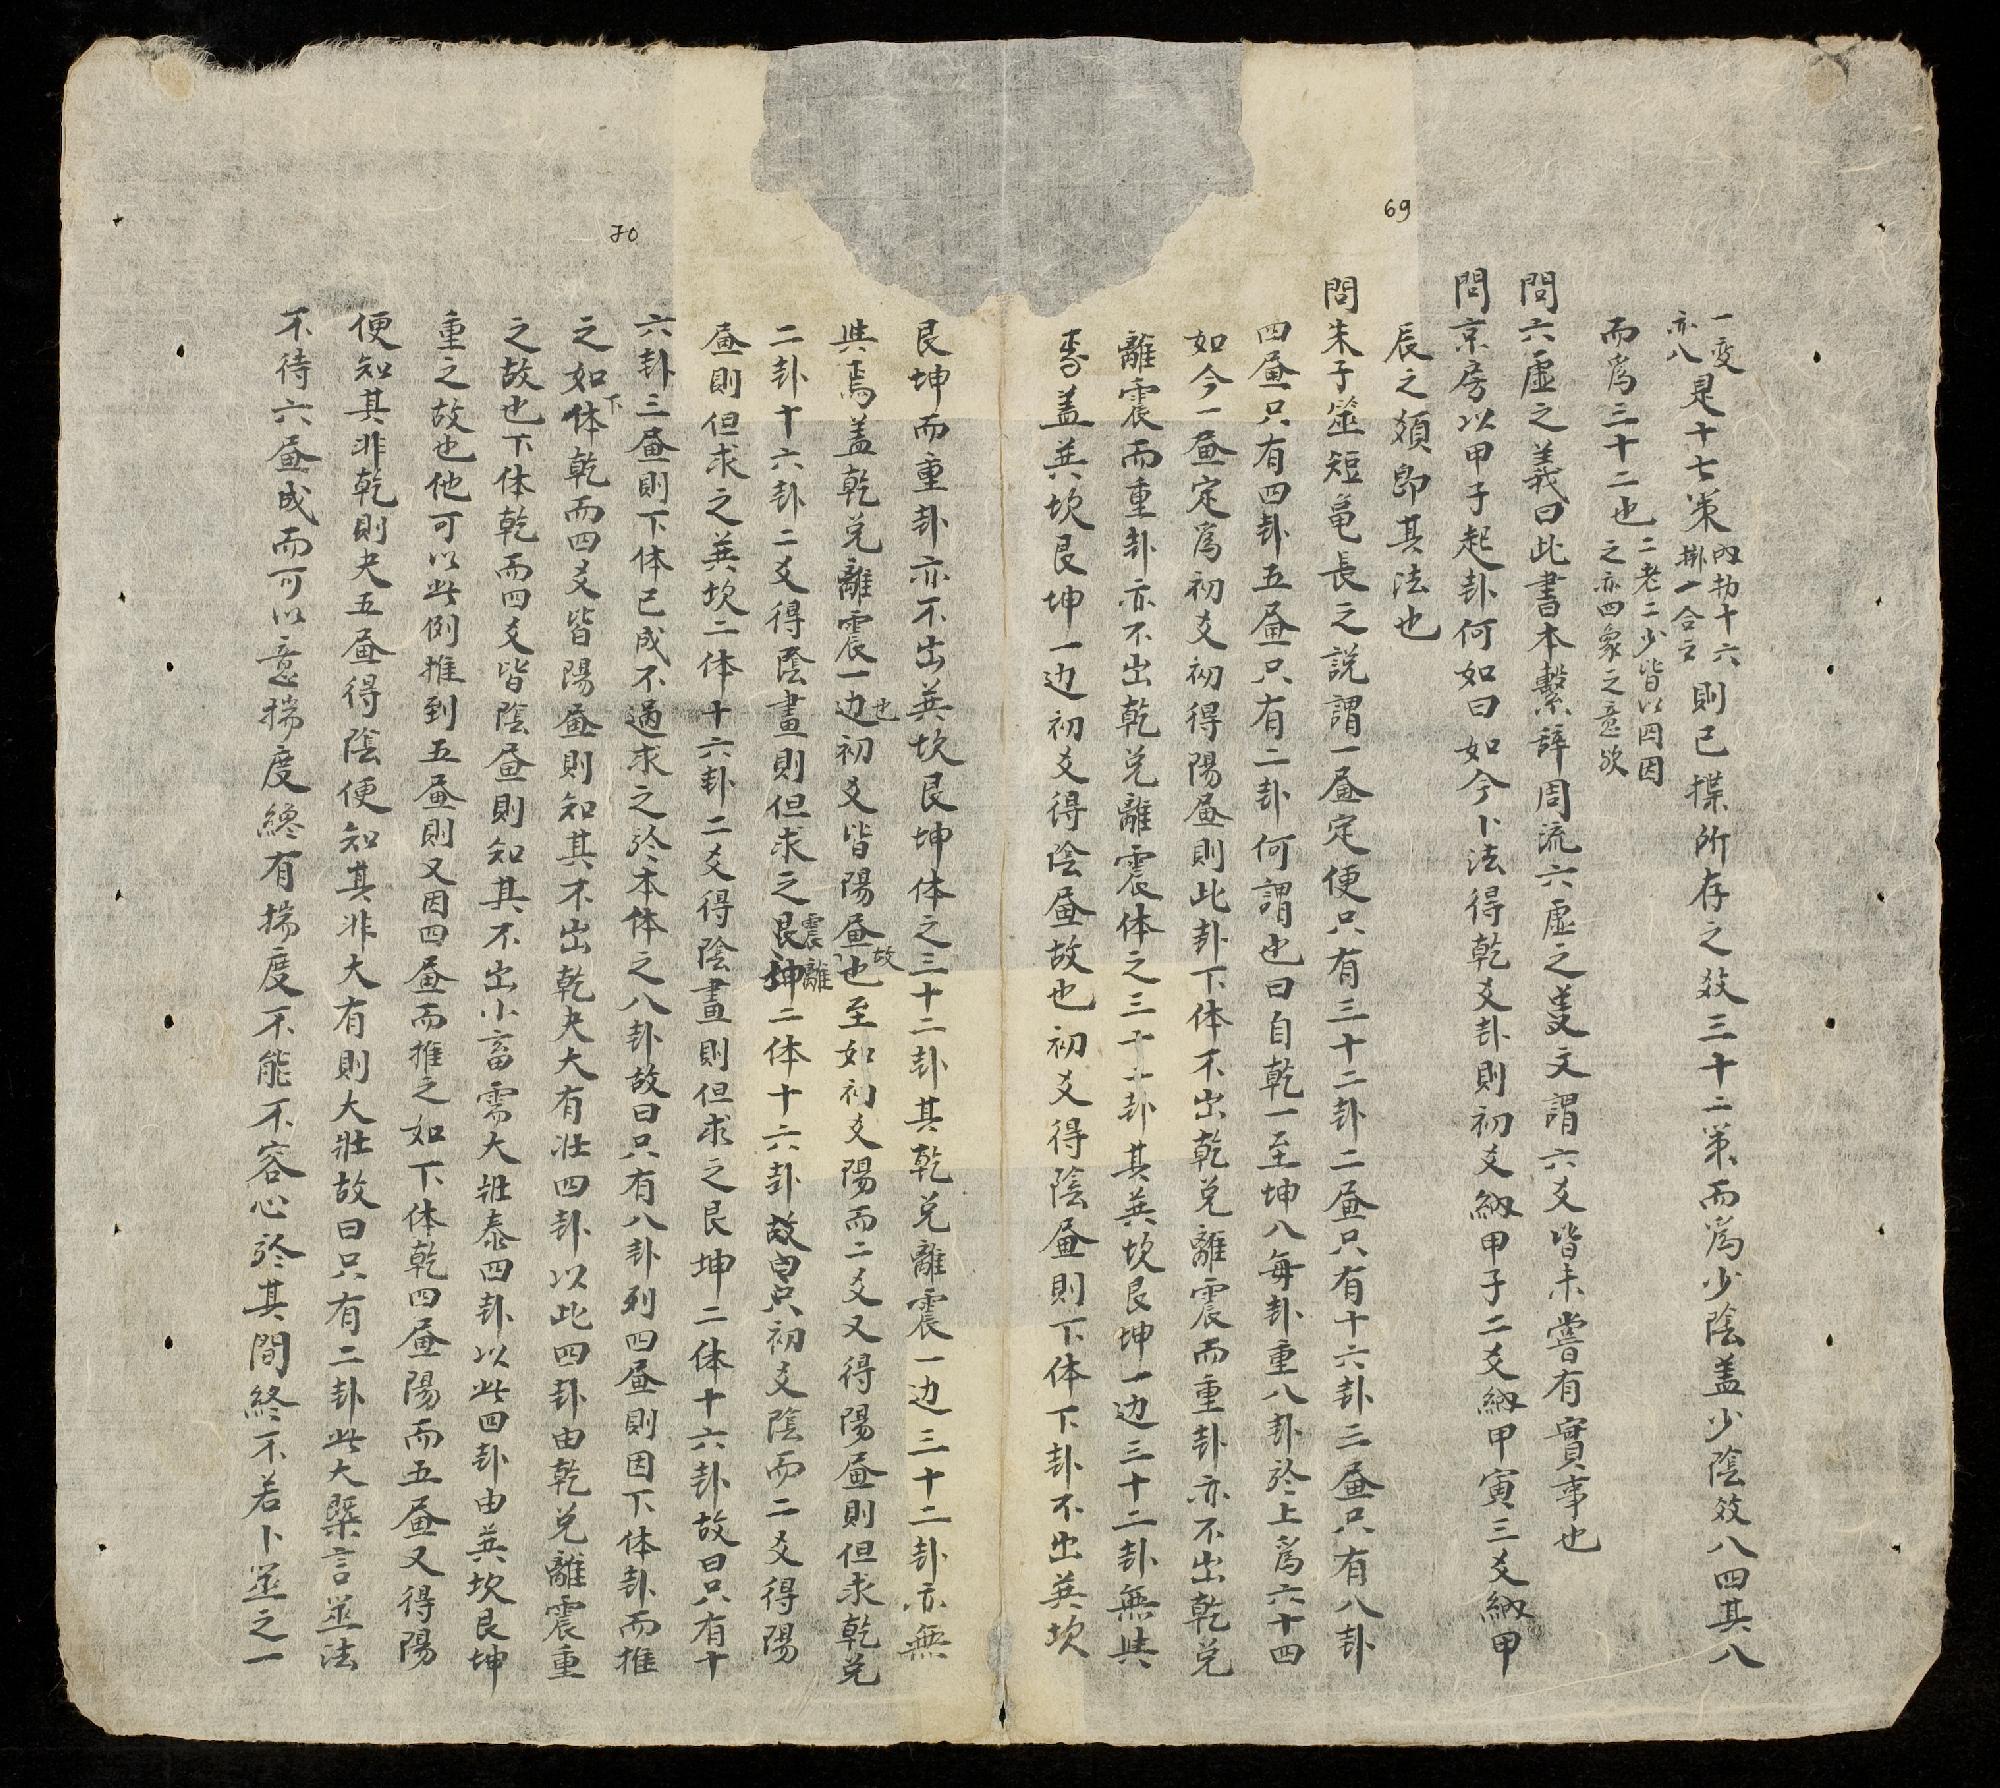 69
一变是十七策內扐十六掛一合之則已揲所存之效三十二策而爲少陰盖少陰效八四其八
亦八
而爲三十二也二老二少皆以四因之亦四象之意欤
問六虛之義曰此書本繫辭周流六虛之文謂六爻皆未嘗有實事也
問京房以甲子起卦何如曰如今卜法得乾爻卦則初爻納甲子二爻納甲寅三爻納甲
辰之類卽其法也
問朱子筮短龜長之説謂一畫定便只有三十二卦二畫只有十六卦三畫只有八卦
四畫只有四卦五畫只有二卦何謂也曰自乾一至坤八每卦重八卦於上爲六十四
如今一畫定爲初爻初得陽畫則此卦下体不出乾兌離震而重卦亦不出乾兌
離震而重卦亦不出乾兌離震体之三十二卦其巽坎艮坤一边三十二卦無與
焉盖巽坎艮坤一边初爻得陰畫故也初爻得陰畫則下体下卦不出巽坎
70
艮坤而重卦亦不出巽坎艮坤体之三十二卦其乾兌離震一边三十二卦亦無
與焉盖乾兌離震一边也初爻皆陽畫故也至如初爻陽而二爻又得陽畫則但求乾兌
二卦十六卦二爻得陰畫則但求之震離二体十六卦故曰只初爻陰而二爻得陽
畫則但求之巽坎二体十六卦二爻得陰畫則但求之艮坤二体十六卦故曰只有十
六卦三畫則下体已成不過求之於本体之八卦故曰只有八卦列四畫則因下体卦而推
之如下体乾而四爻皆陽畫則知其不出乾夬大有壯四卦以此四卦由乾兌離震重
之故也下体乾而四爻皆陰畫則知其不出小畜需大壯泰四卦以此四卦由巽坎艮坤
重之故也他可以此例推到五畫則又因四畫而推之如下体乾四畫陽而五畫又得陽
便知其非乾則夬五畫得陰便知其非大有則大壯故曰只有二卦此大槩言筮法
不待六畫成而可以意揣度終有揣度不能不容心於其間終不若卜筮之一